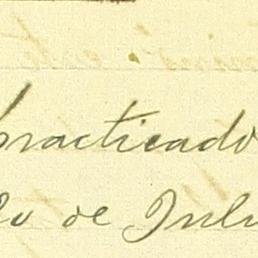 practicado
20 de Julio